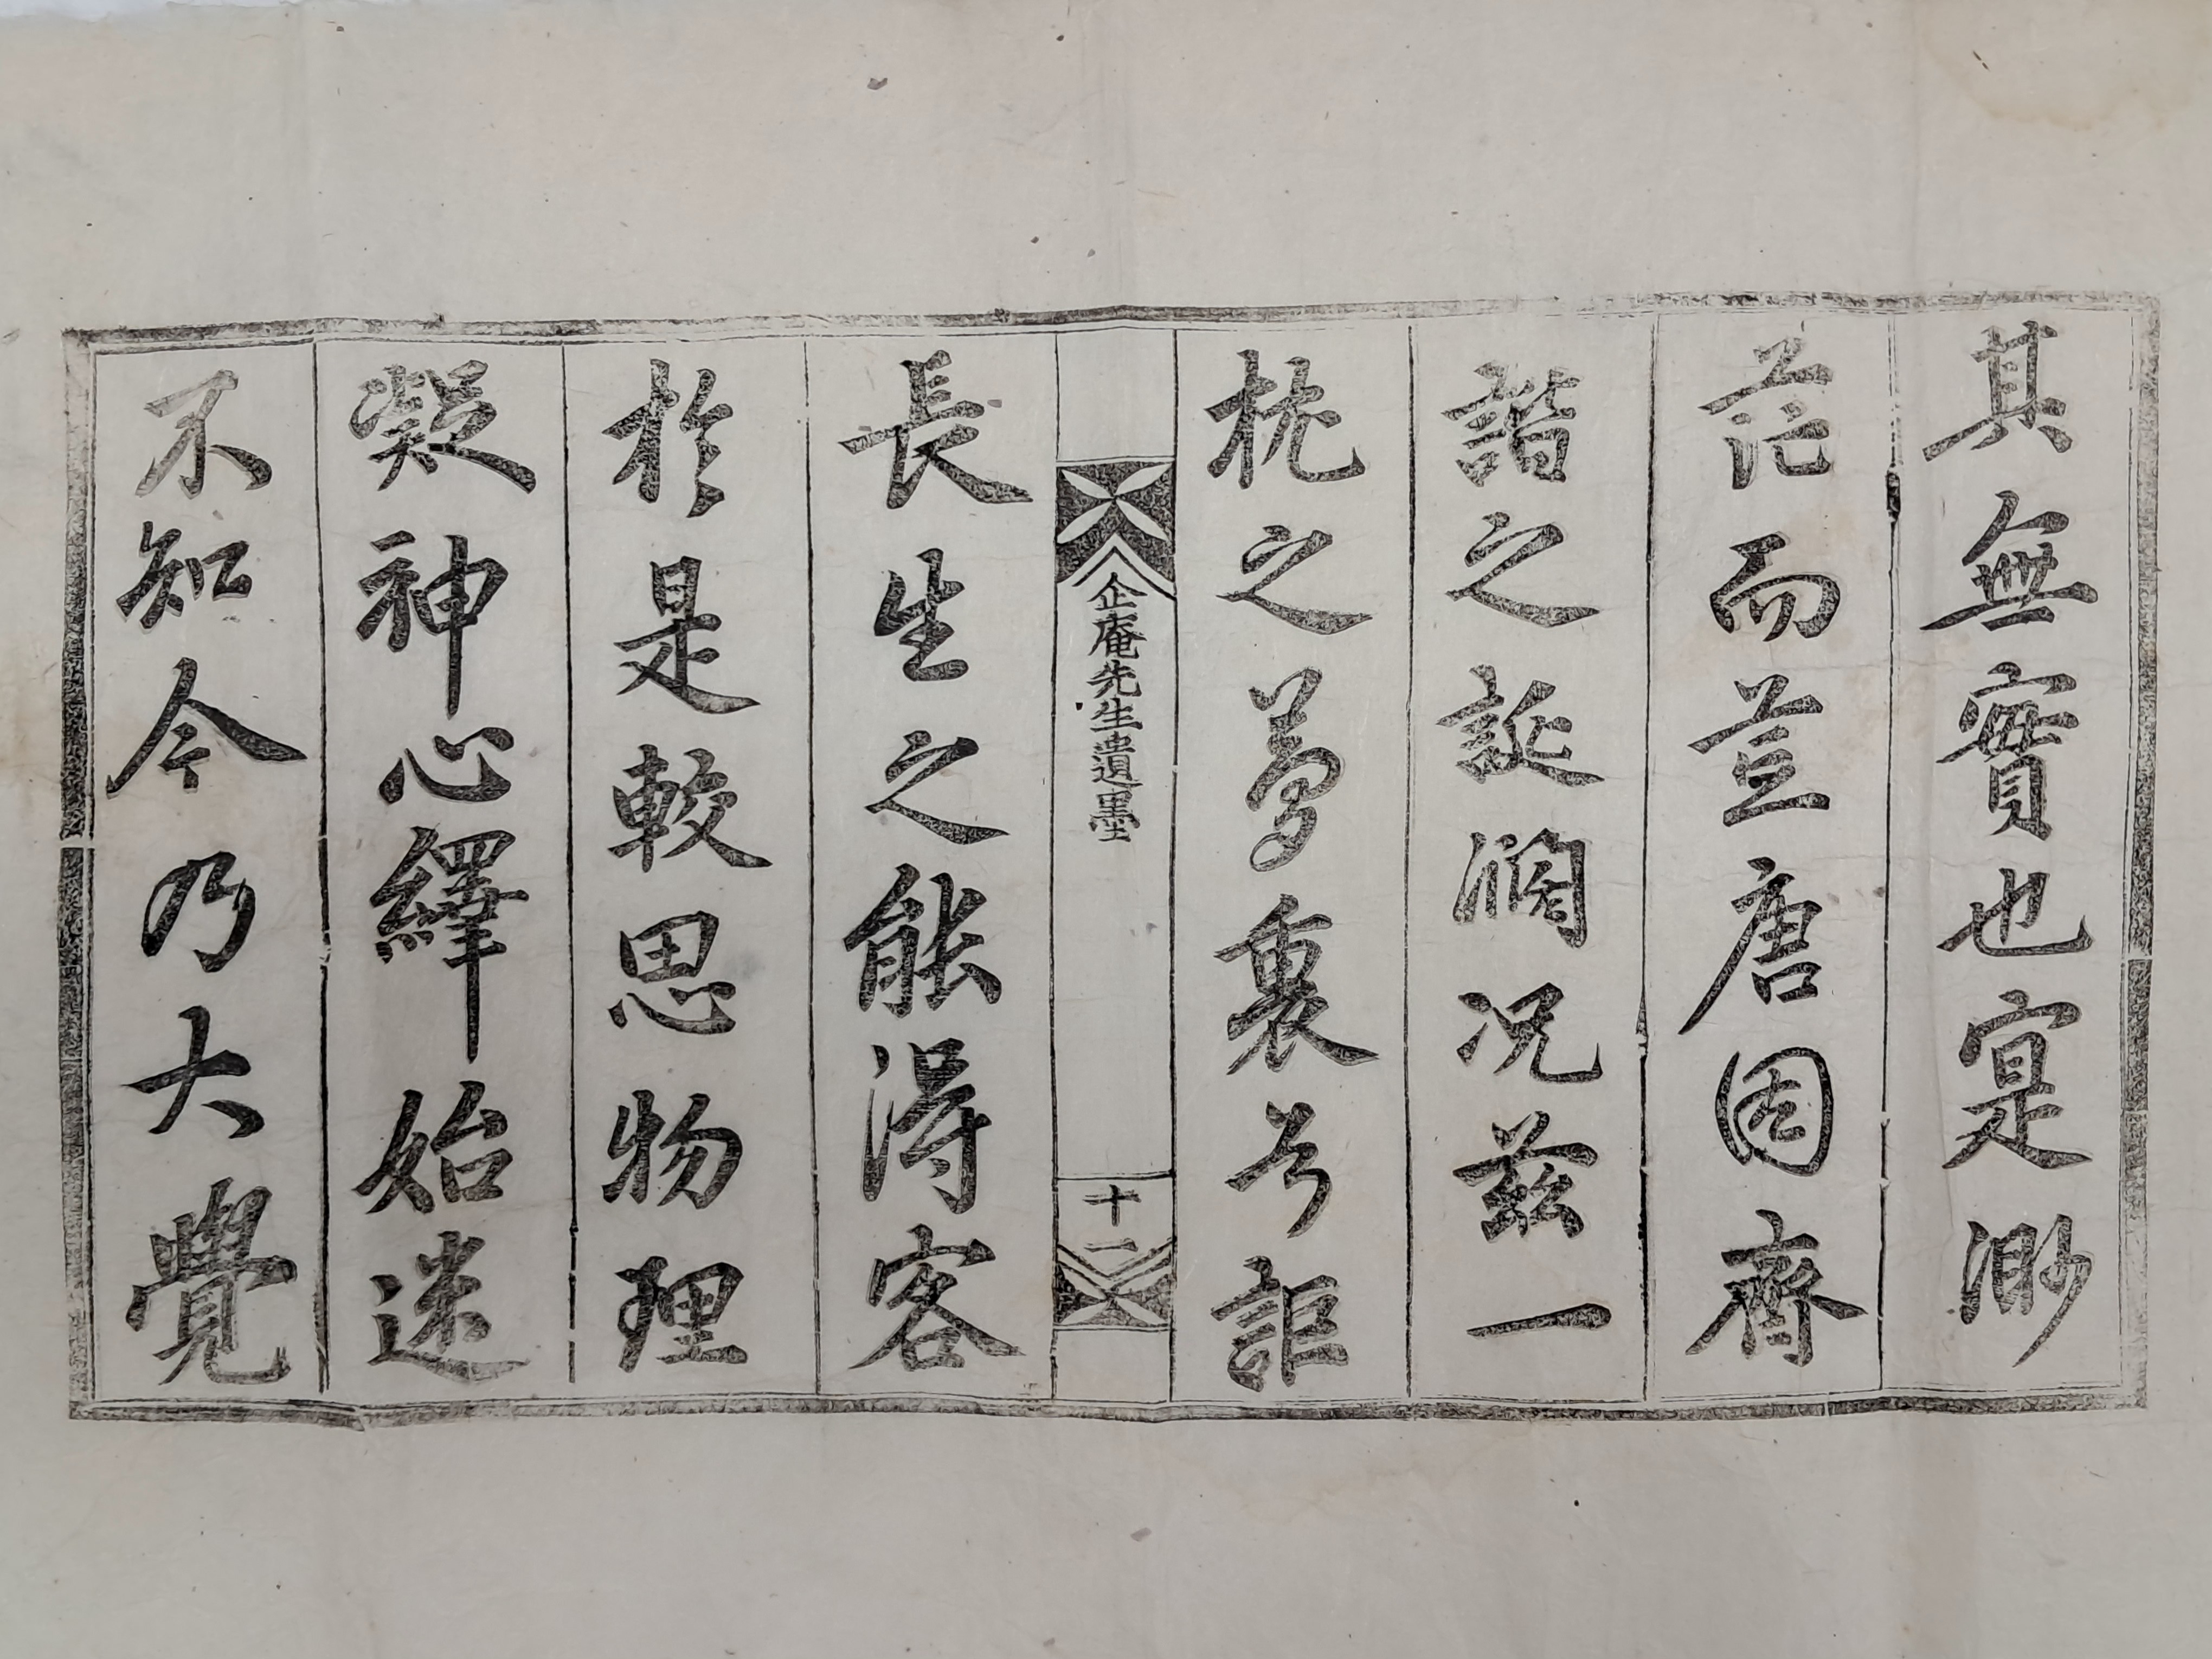 其無實也寔渺
茫而荁唐固齊
諧之誕濶况茲一
枕之夢裏兮詎
企庵先生遺墨
十一
長生之能淂客
於是較思物理
凝神心繹始迷
不知今乃大覺